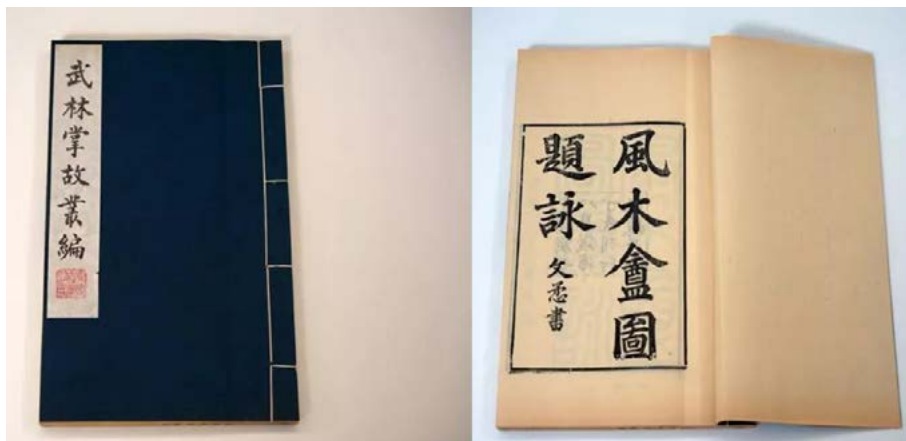 武林掌故叢編
風木盦圖
題詠
文悊書